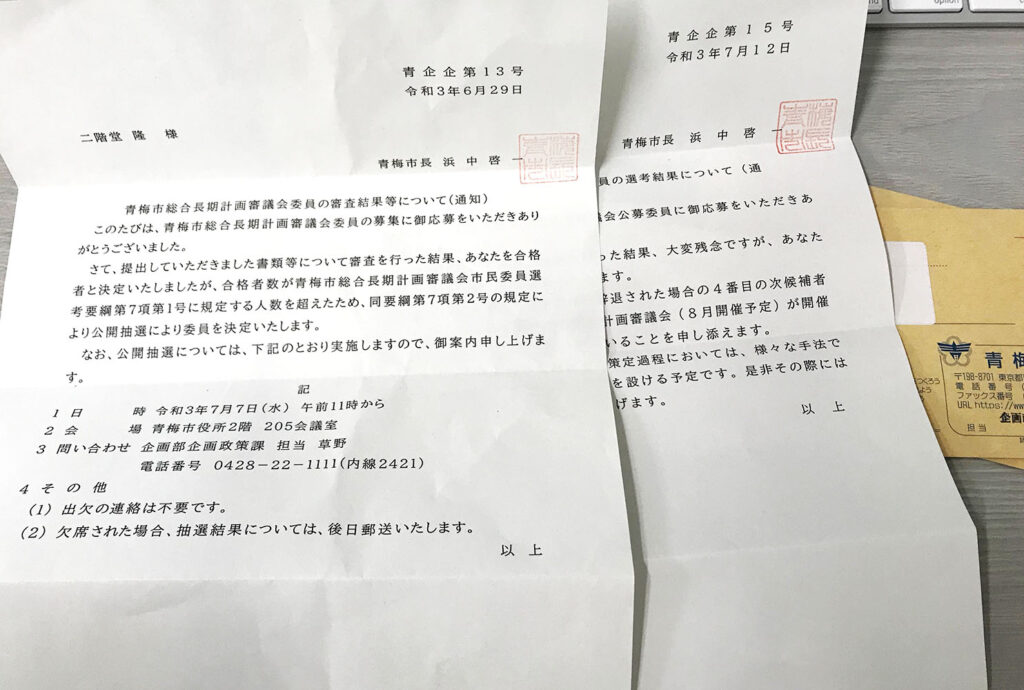 青企企第13号
令和3年6月29日
二階堂 隆 様
青梅市長 浜中啓一
青梅市総合長期計画審議会委員の審査結果等について(通知)
このたびは、青梅市総合長期計画審議会委員の募集に御応募をいただきあり
がとうございました。
さて、提出していただきました書類等について審査を行った結果、あなたを合格
者と決定いたしましたが、合格者数が青梅市総合長期計画審議会市民委員選
考要綱第7項第1号に規定する人数を超えたため、同要綱第7項第2号の規定に
より公開抽選により委員を決定いたします。
なお、公開抽選については、下記のとおり実施しますので、御案内申し上げま
す。
記
1 日 時 令和3年7月7日(水) 午前11時から
2 会 場 青梅市役所2階 205会議室
3 問い合わせ 企画部企画政策課 担当 草野
電話番号 0428-22-1111(内線2421)
4 その他
(1) 出欠の連絡は不要です。
(2) 欠席された場合、抽選結果については、後日郵送いたします。
以 上
青企企第15号
令和3年7月12日
青梅市長 浜中啓一
員の選考結果について(通
議会公募委員に御応募をいただきあ
った結果、大変残念ですが、あなた
ます。
辞退された場合の4番目の次候補者
計画審議会(8月開催予定)が開催
いることを申し添えます。
策定過程においては、様々な手法で
を設ける予定です。是非その際には
げます。
以 上
青梅
〒198-8701 東京都
電話番号
ファックス番号
URL https://ww
企画
担当
option